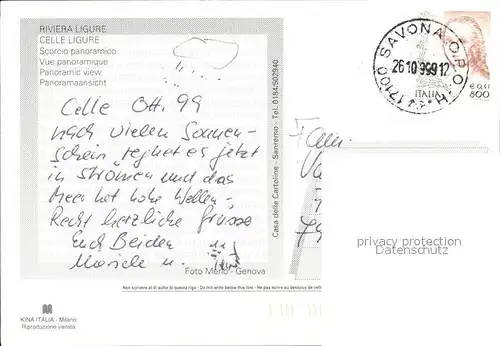 RIVIERA LIGURE
CELLE LIGURE
Scorcio panoramico
Vue panoramique
Panoramic view
Panoramaansicht
Celle Okt. 99
nach vielen Sonnen-
schein regnet es jetzt
in Strömen und das
Meer hat hohe Wellen.
Recht herzliche Grüsse
Euch Beiden
u.
Foto Merlo - Genova
KINA ITALIA - Milano
Riproduzione vietata
Non scrivere al di sotto di questa riga - Do not write below this line - Ne pas écrire au dessous de cette
Casa delle Cartoline - Sanremo - Tel. 0184-502940
Fam.
17100 SAVONA C.P.O.
26 10 999 12
ITALIA
€ 0,41
800
privacy protection
Datenschutz